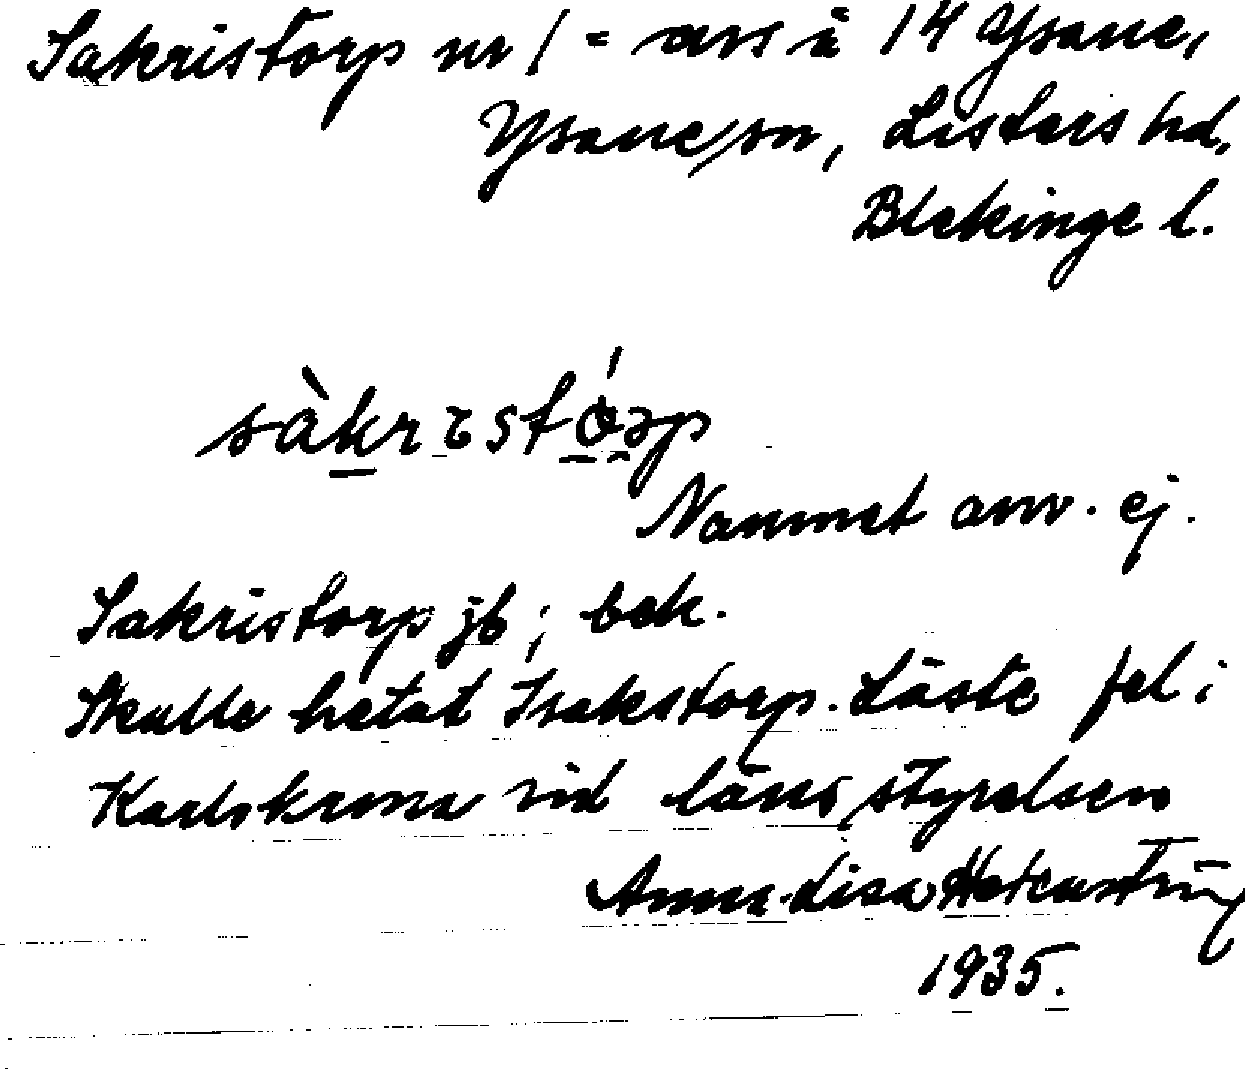 Sakristorp nr 1 = avs å 14 Ysane,
Ysane sn, Listers hd,
Blekinge l.
sàkrɪstórp
Namnet anv. ej.
Sakristorp jb; bek.
Skulle hetat Isakstorp. Läste fel i
Karlskrona vid länsstyrelsen
Anna-Lisa
1935.